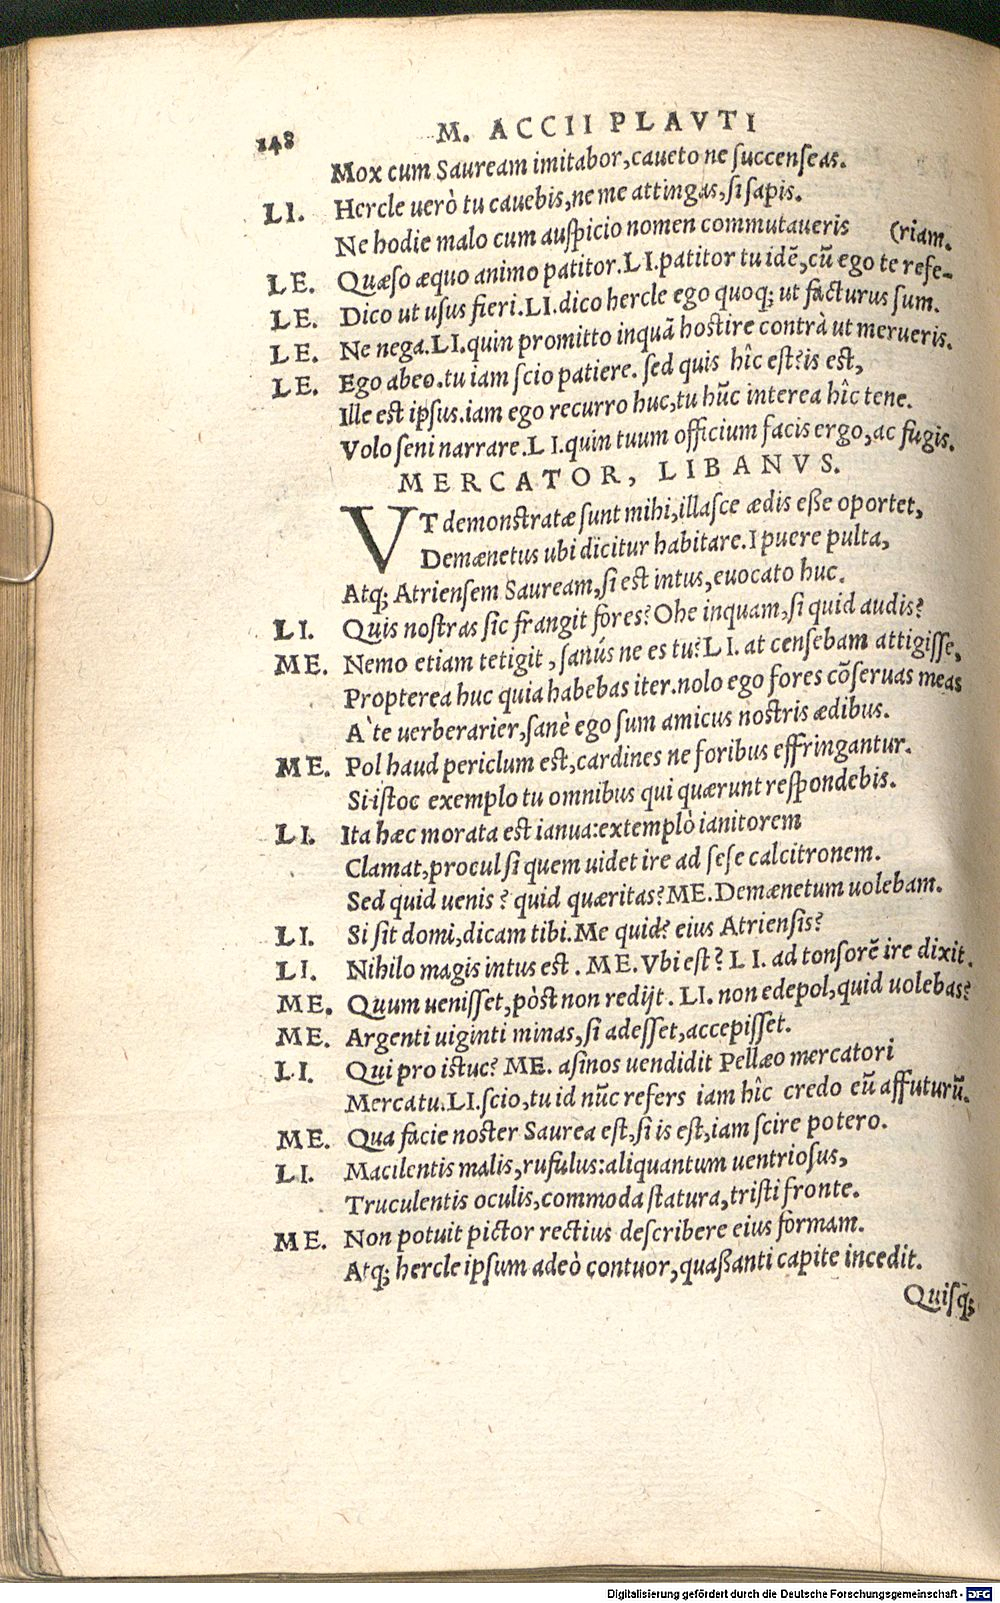 148 M. ACCII PLAVTI
Mox cum Sauream imitabor, caueto ne succenseas.
LI. Hercle uerò tu cauebis, ne me attingas, si sapis.
Ne hodie malo cum auspicio nomen commutaueris (riam.
LE. Quæso æquo animo patitor. LI. patitor tu idē, cū ego te refe-
LE. Dico ut usus fieri. LI. dico hercle ego quoq; ut facturus sum.
LE. Ne nega. LI. quin promitto inquā hostire contrà ut merueris.
LE. Ego abeo. tu iam scio patiere. sed quis hîc est? is est,
Ille est ipsus. iam ego recurro huc, tu hūc interea hîc tene.
Volo seni narrare. LI. quin tuum officium facis ergo, ac fugis.
MERCATOR, LIBANVS.
VT demonstratæ sunt mihi, illasce ædis esse oportet,
Demænetus ubi dicitur habitare. I puere pulta,
Atq; Atriensem Sauream, si est intus, euocato huc.
LI. Quis nostras sic frangit fores? Ohe inquam, si quid audis?
ME. Nemo etiam tetigit, sanús ne es tu? LI. at censebam attigisse,
Propterea huc quia habebas iter. nolo ego fores cōseruas meas
A' te uerberarier, sanè ego sum amicus nostris ædibus.
ME. Pol haud periclum est, cardines ne foribus effringantur.
Si istoc exemplo tu omnibus qui quærunt respondebis.
LI. Ita hæc morata est ianua: extemplò ianitorem
Clamat, procul si quem uidet ire ad sese calcitronem.
Sed quid uenis? quid quæritas? ME. Demænetum uolebam.
LI. Si sit domi, dicam tibi. Me quid? eius Atriensis?
LI. Nihilo magis intus est. ME. Vbi est? LI. ad tonsorē ire dixit.
ME. Quum uenisset, pòst non redijt. LI. non edepol, quid uolebas?
ME. Argenti uiginti minas, si adesset, accepisset.
LI. Qui pro istuc? ME. asinos uendidit Pellæo mercatori
Mercatu. LI. scio, tu id nūc refers iam hîc credo eū affuturū.
ME. Qua facie noster Saurea est, si is est, iam scire potero.
LI. Macilentis malis, rufulus: aliquantum uentriosus,
Truculentis oculis, commoda statura, tristi fronte.
ME. Non potuit pictor rectius describere eius formam.
Atq; hercle ipsum adeò contuor, quassanti capite incedit.
Quisq;
Digitalisierung gefördert durch die Deutsche Forschungsgemeinschaft - DFG